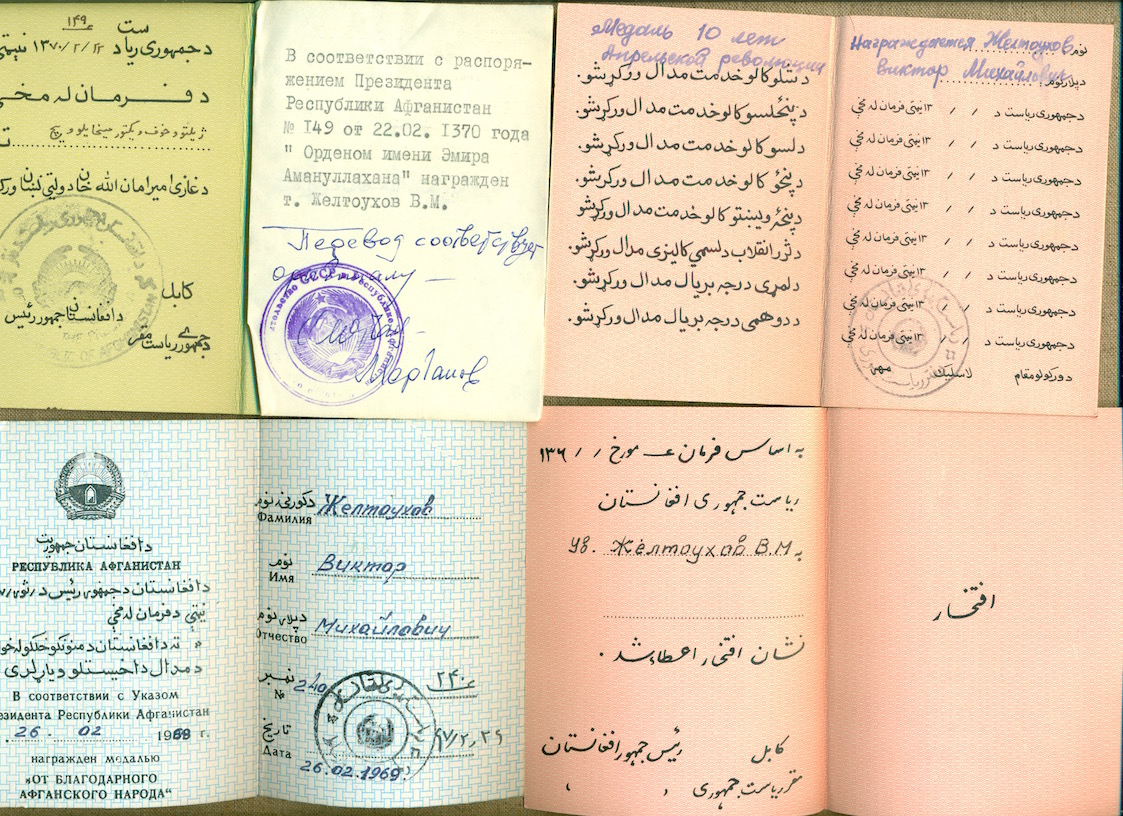 ۱۴۹
د جمهوری ریاست د ۱۳۷۰/۲/۲۲ نیټې
د فرمان له مخې
ژیلتوخوف ویکتور میخایلوویچ
د غازی امیر امان الله خان دولتي نښان
کابل
د افغانستان جمهور رئیس
د جمهوری ریاست مقر
В соответствии с распоря-
жением Президента
Республики Афганистан
№ 149 от 22.02. 1370 года
" Орденом имени Эмира
Амануллахана" награжден
т. Желтоухов В.М.
Перевод соответствует
оригиналу
Медаль 10 лет
Апрельской революции
د ښتلو کالو خدمت مدال ورکړشو.
د پنځلسو کالو خدمت مدال ورکړشو.
د لسو کالو خدمت مدال ورکړشو.
د پنځو کالو خدمت مدال ورکړشو.
د پنځه ویشتو کالو خدمت مدال ورکړشو
د ثور انقلاب د لسمې کالیزې مدال ورکړشو.
د لمړۍ درجه بریال مدال ورکړشو.
د دوهمې درجه بریال مدال ورکړشو.
Награждается Желтоухов
نوم
Виктор Михайлович
د پلار نوم
د جمهوری ریاست د / / ۱۳ نیټې فرمان له مخې
د جمهوری ریاست د / / ۱۳ نیټې فرمان له مخې
د جمهوری ریاست د / / ۱۳ نیټې فرمان له مخې
د جمهوری ریاست د / / ۱۳ نیټې فرمان له مخې
د جمهوری ریاست د / / ۱۳ نیټې فرمان له مخې
د جمهوری ریاست د / / ۱۳ نیټې فرمان له مخې
د جمهوری ریاست د / / ۱۳ نیټې فرمان له مخې
د جمهوری ریاست د / / ۱۳ نیټې فرمان له مخې
د ورکولو مقام لاسلیک مهر
د افغانستان جمهوریت
РЕСПУБЛИКА АФГАНИСТАН
د افغانستان د جمهوری رئیس د
نیټې د فرمان له مخې
د مدال د اخیستلو ویاړ لری
В соответствии с Указом
езидента Республики Афганистан
26. 02 1989 г.
награжден медалью
"ОТ БЛАГОДАРНОГО
АФГАНСКОГО НАРОДА"
د کورنۍ نوم
Фамилия Желтоухов
نوم
Имя Виктор
د پلار نوم
Отчество Михайлович
نمبر ۲۴۰
№ 240
تاریخ
Дата 26.02.1969.
به اساس فرمان عـ مورخ / / ۱۳۶
ریاست جمهوری افغانستان
به Ув. Желтоухов В.М
نشان افتخار اعطاء شد .
کابل رئیس جمهور افغانستان
مقر ریاست جمهوری
افتخار